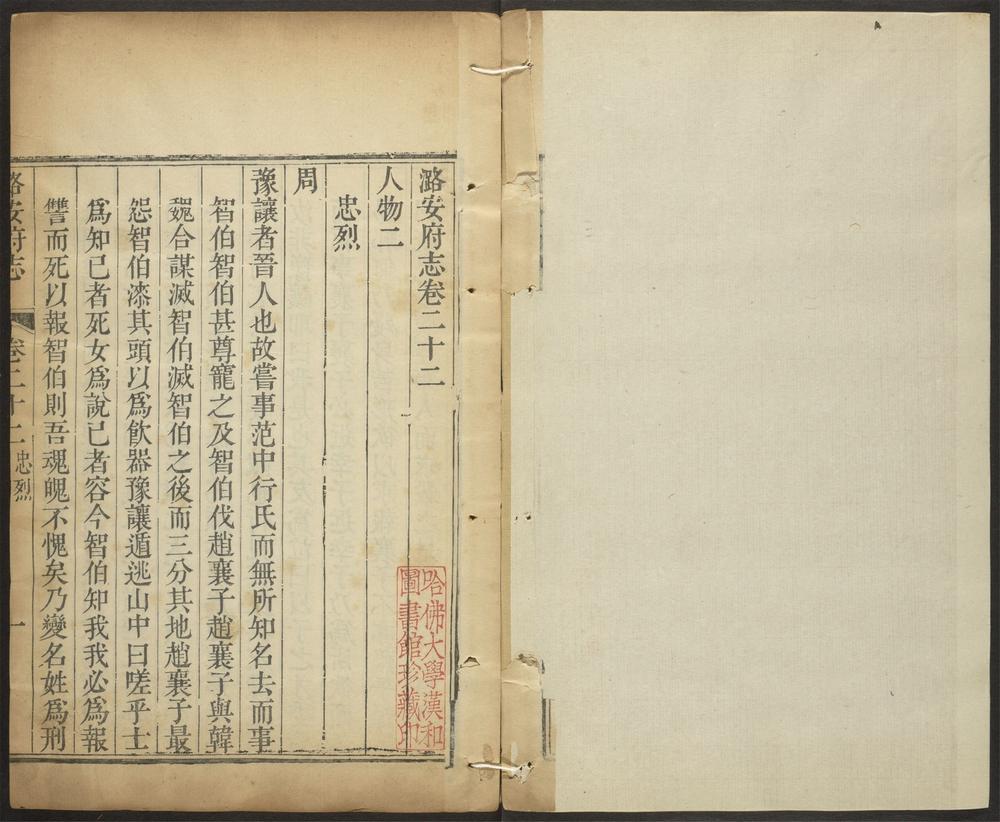 潞安府志卷二十二
人物二
忠烈
周
豫讓者晉人也故嘗事范中行氏而無所知名去而事
智伯智伯甚尊寵之及智伯伐趙襄子趙襄子與韓
魏合謀滅智伯滅智伯之後而三分其地趙襄子最
怨智伯漆其頭以爲飲器豫讓遁逃山中曰嗟乎士
爲知己者死女爲說己者容今智伯知我我必爲報
讐而死以報智伯則吾魂魄不愧矣乃變名姓爲刑
潞安府志 卷二十二 忠烈 一
哈佛大學漢和
圖書館珍藏印